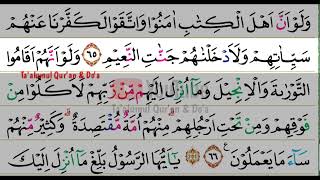 وَلَوْ اَنَّ اَهْلَ الْكِتٰبِ اٰمَنُوْا وَاتَّقَوْا لَكَفَّرْنَا عَنْهُمْ
سَيِّاٰتِهِمْ وَلَاَدْخَلْنٰهُمْ جَنّٰتِ النَّعِيْمِ ٦٥ وَلَوْ اَنَّهُمْ اَقَامُوا
Ta'allumul Qur'an & Do'a
التَّوْرٰىةَ وَالْاِنْجِيْلَ وَمَآ اُنْزِلَ اِلَيْهِمْ مِّنْ رَّبِّهِمْ لَاَكَلُوْا مِنْ
فَوْقِهِمْ وَمِنْ تَحْتِ اَرْجُلِهِمْ مِنْهُمْ اُمَّةٌ مُّقْتَصِدَةٌ ۗ وَكَثِيْرٌ مِّنْهُمْ
Ta'allumul Qur'an & Do'a
سَآءَ مَا يَعْمَلُوْنَ ࣖ ٦٦ يٰٓاَيُّهَا الرَّسُوْلُ بَلِّغْ مَآ اُنْزِلَ اِلَيْكَ